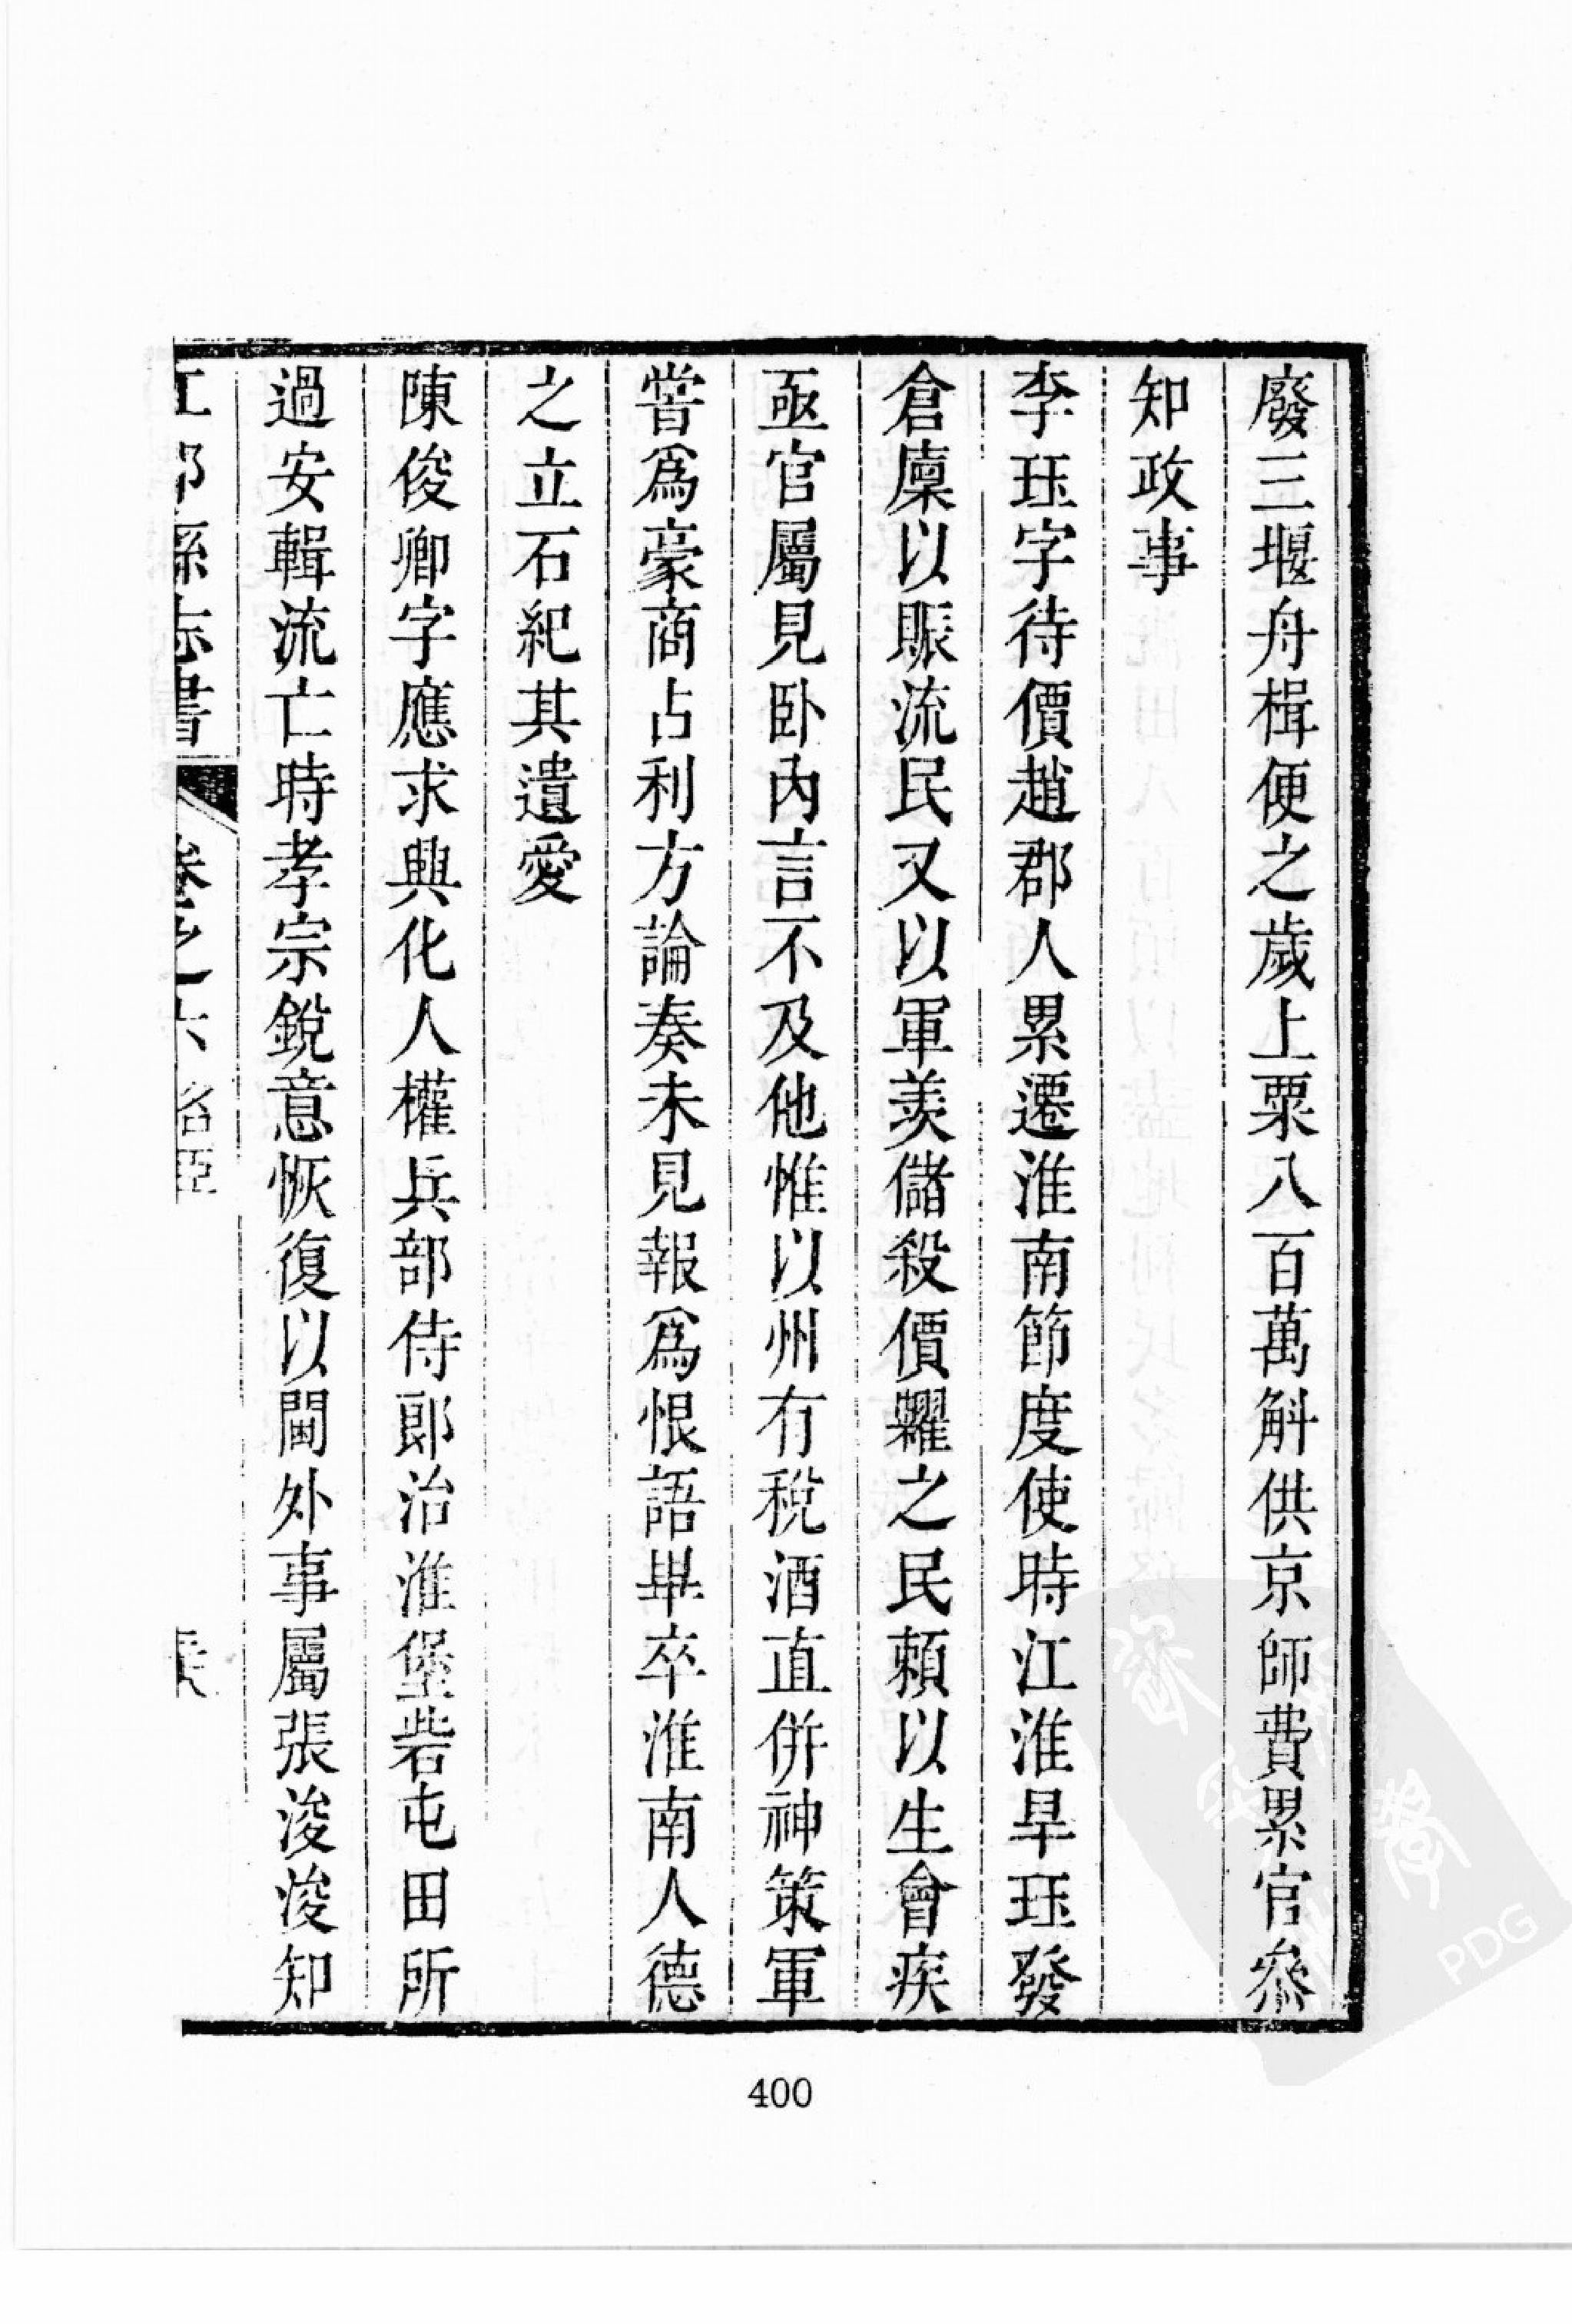 廢三堰舟楫便之歲上粟八百萬斛供京師費累官叅
知政事
李珏字待價趙郡人累遷淮南節度使時江淮旱珏發
倉廩以賑流民又以軍羨儲殺價糶之民賴以生會疾
亟官屬見卧內言不及他惟以州有稅酒直併神策軍
嘗爲豪商占利方論奏未見報爲恨語畢卒淮南人德
之立石紀其遺愛
陳俊卿字應求興化人權兵部侍郎治淮堡砦屯田所
過安輯流亡時孝宗銳意恢復以閫外事屬張浚浚知
江都縣志書 卷之六 名臣
400
PDG